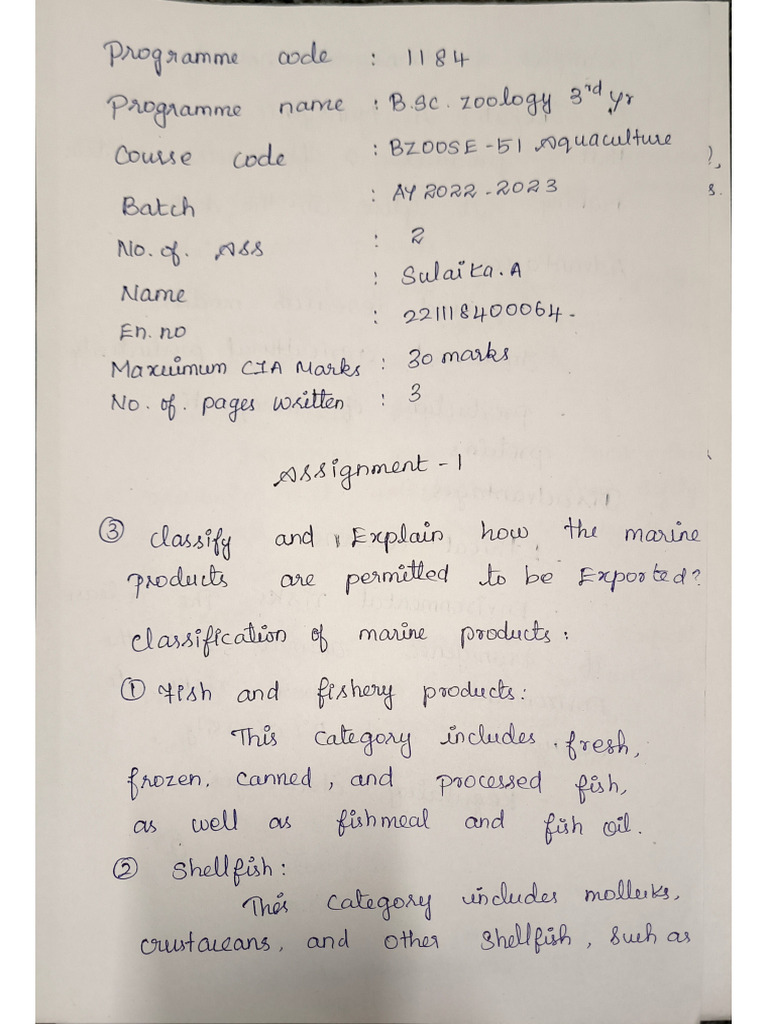 Programme code : 1184
Programme name : B.Sc. zoology 3rd yr
Course code : BZOOSE-51 Aquaculture
Batch : AY 2022-2023
No. of. Ass : 2
Name : Sulaika.A
En. no : 221118400064.
Maximum CIA Marks : 30 marks
No. of. pages written : 3
Assignment - 1
③ classify and Explain how the marine
products are permitted to be Exported?
classification of marine products:
① Fish and fishery products:
This category includes fresh,
frozen, canned, and processed fish,
as well as fishmeal and fish oil.
② Shellfish:
This category includes molluks,
crustaceans, and other shellfish, such as